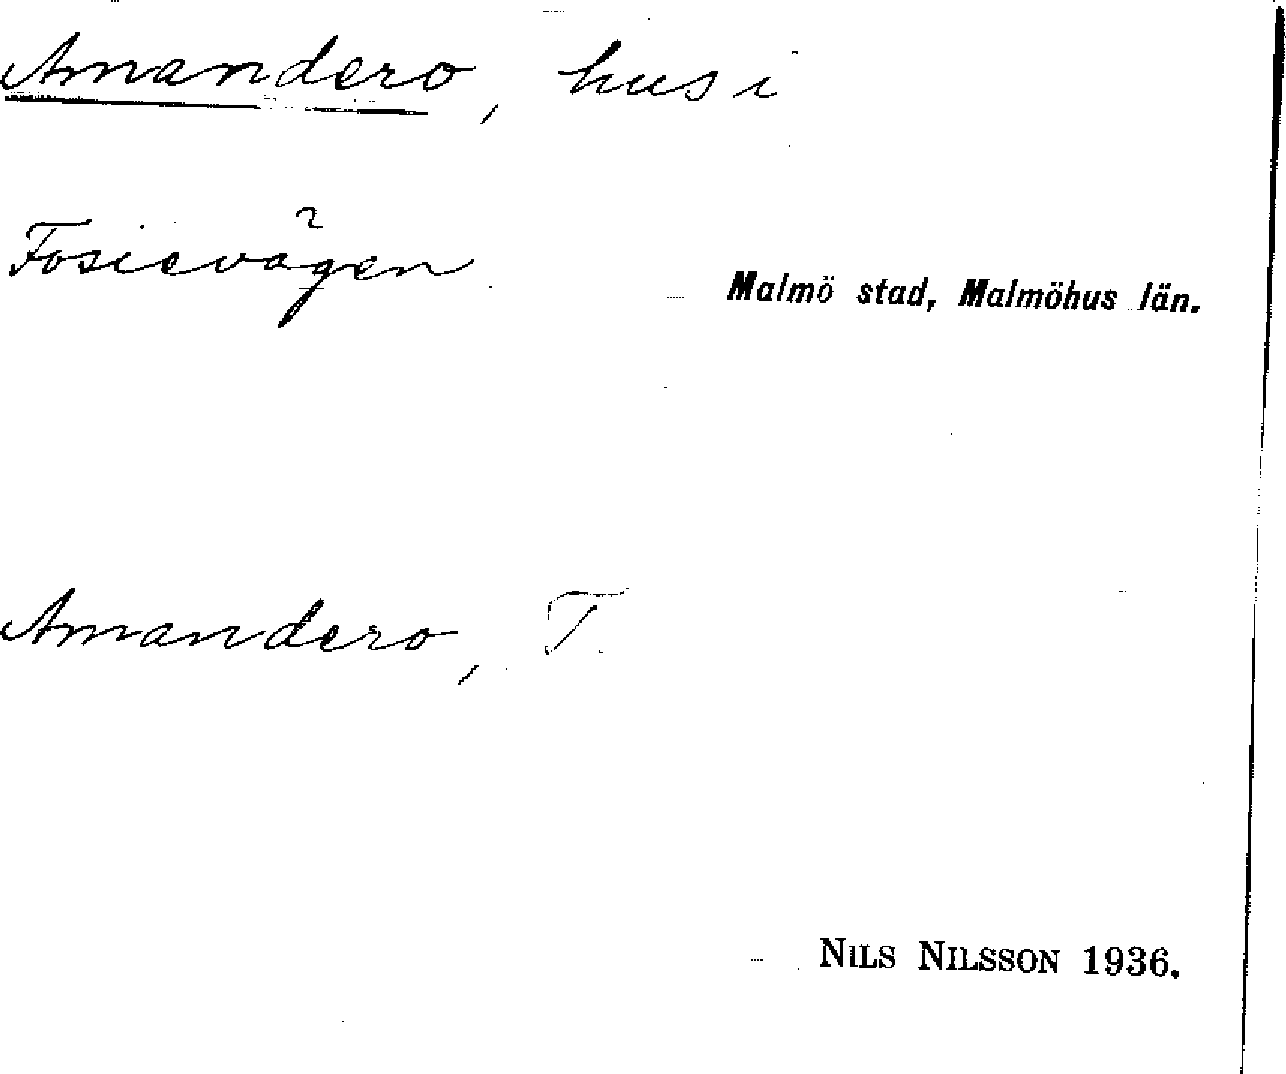 Amandero, hus i
Fosievägen
Malmö stad, Malmöhus län.
Amandero, T.
NILS NILSSON 1936.